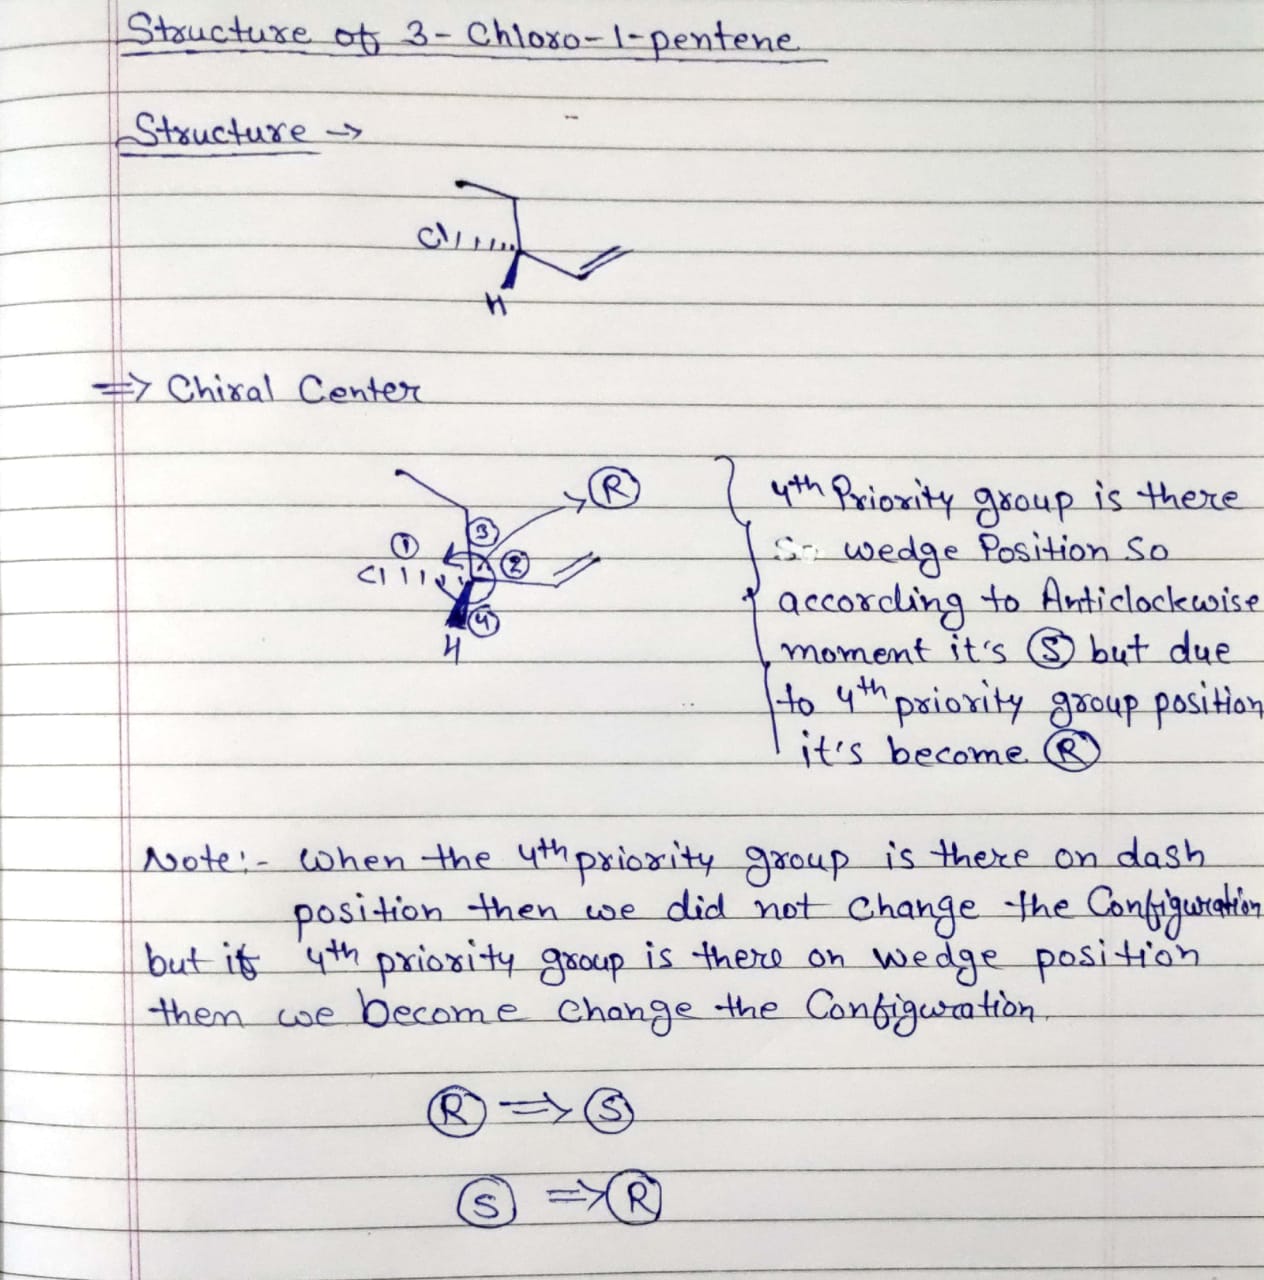 Structure of 3-Chloro-1-pentene
Structure →
Cl
H
=> Chiral Center
R
3
1
2
Cl
4
H
4th Priority group is there
So wedge Position So
according to Anticlockwise
moment it's S but due
to 4th priority group position
it's become R
Note:- When the 4th priority group is there on dash
position then we did not change the Configuration
but if 4th priority group is there on wedge position
then we become change the Configuration.
R => S
S => R